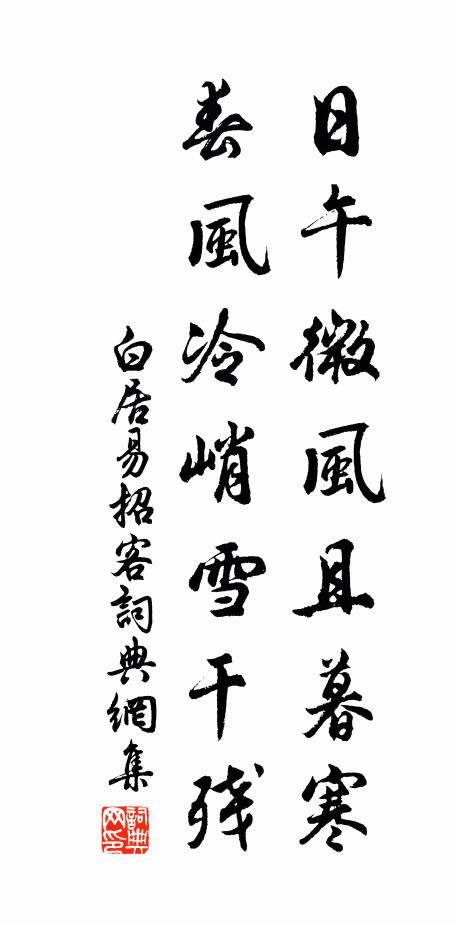 日午微風且暮寒
春風冷峭雪干残
白居易招客詞典網集
詞典网印